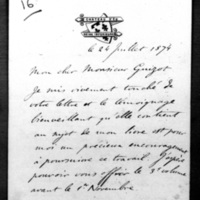 16
le 26 Juillet 1874
Mon cher Monsieur Guizot
Je suis vivement touché de
votre lettre et le témoignage
bienveillant qu'elle contient
au sujet de mon livre est pour
moi un précieux encouragement
à poursuivre ce travail. J'espère
pouvoir vous offrir le 3e volume
avant le 1er Novembre